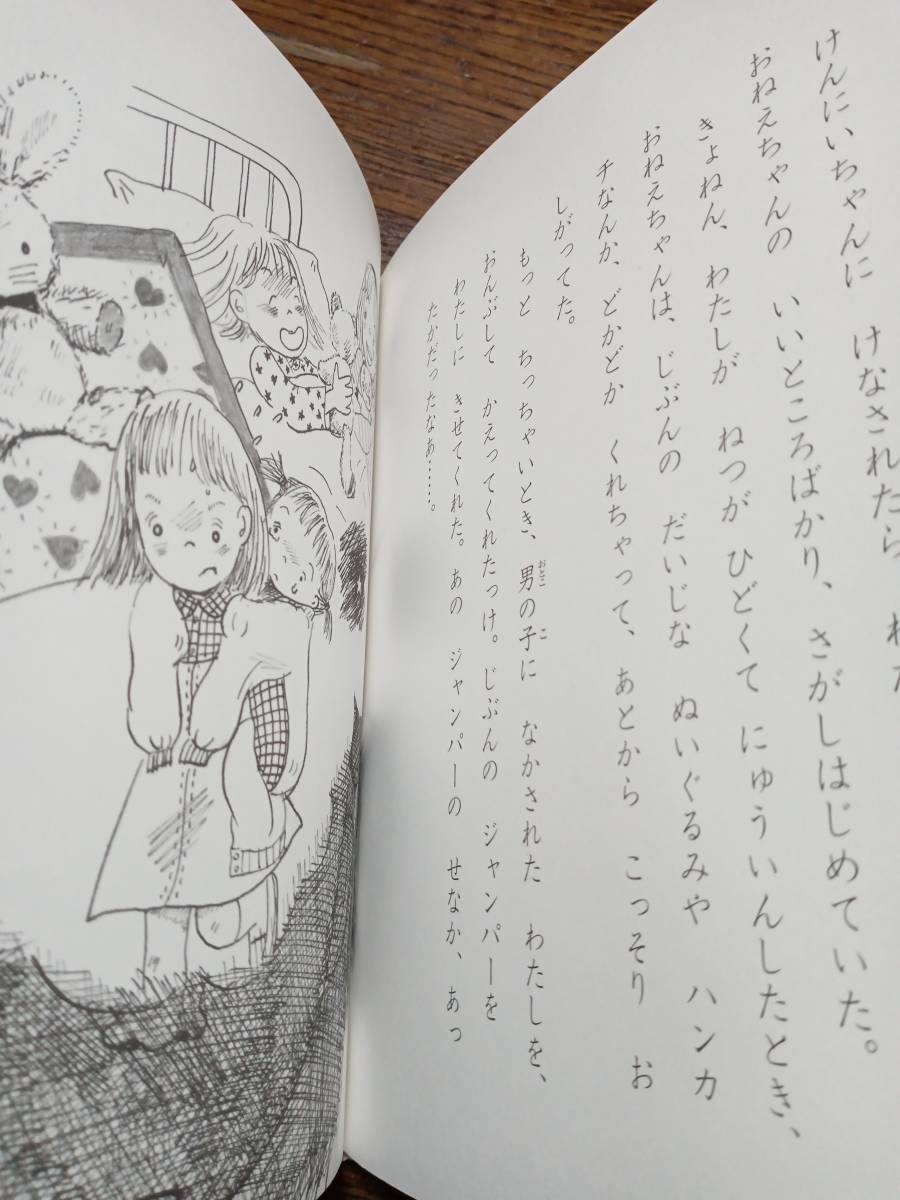 けんにいちゃんに けなされたら わた
おねえちゃんの いいところばかり、さがしはじめていた。
きょねん、わたしが ねつが ひどくて にゅういんしたとき、
おねえちゃんは、じぶんの だいじな ぬいぐるみや ハンカ
チなんか、どかどか くれちゃって、あとから こっそり お
しがってた。
もっと ちっちゃいとき、男の子に なかされた わたしを、
おんぶして かえってくれたっけ。じぶんの ジャンパーを
わたしに きせてくれた。あの ジャンパーの せなか、あっ
たかだったなあ……。